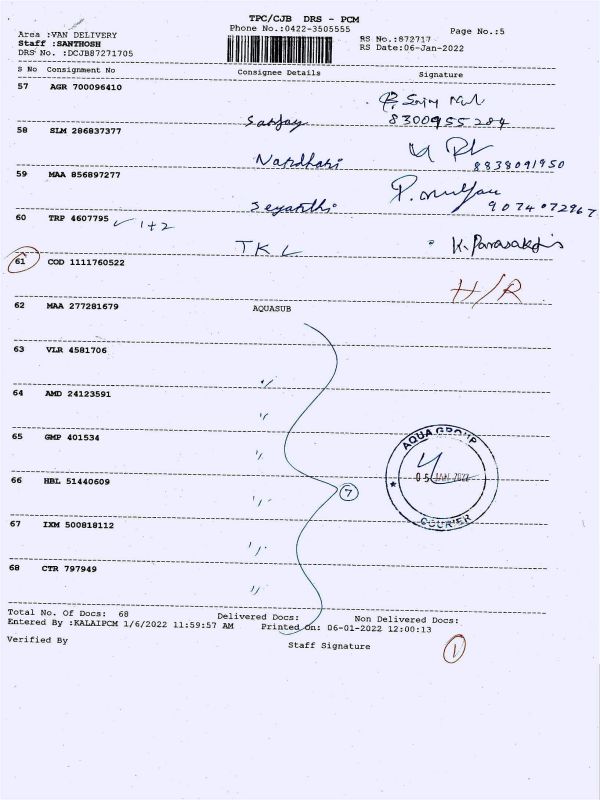 TPC/CJB DRS - PCM
Phone No.:0422-3505555
Page No.:5
Area :VAN DELIVERY
Staff :SANTHOSH
DRS No. :DCJB87271705
RS No.:872717
RS Date:06-Jan-2022
S No Consignment No Consignee Details Signature
57 AGR 700096410
Sanjay 8300955284
58 SLM 286837377
8838091950
59 MAA 856897277
9074072967
60 TRP 4607795 1+2
TKL
61 COD 1111760522
H/R
62 MAA 277281679 AQUASUB
63 VLR 4581706
64 AMD 24123591
65 GMP 401534
66 HBL 51440609
67 IXM 500818112
68 CTR 797949
7
AQUA GROUP
05 JAN 2022
COURIER
Total No. Of Docs: 68 Delivered Docs: Non Delivered Docs:
Entered By :KALAIPCM 1/6/2022 11:59:57 AM Printed On: 06-01-2022 12:00:13
Verified By Staff Signature
1